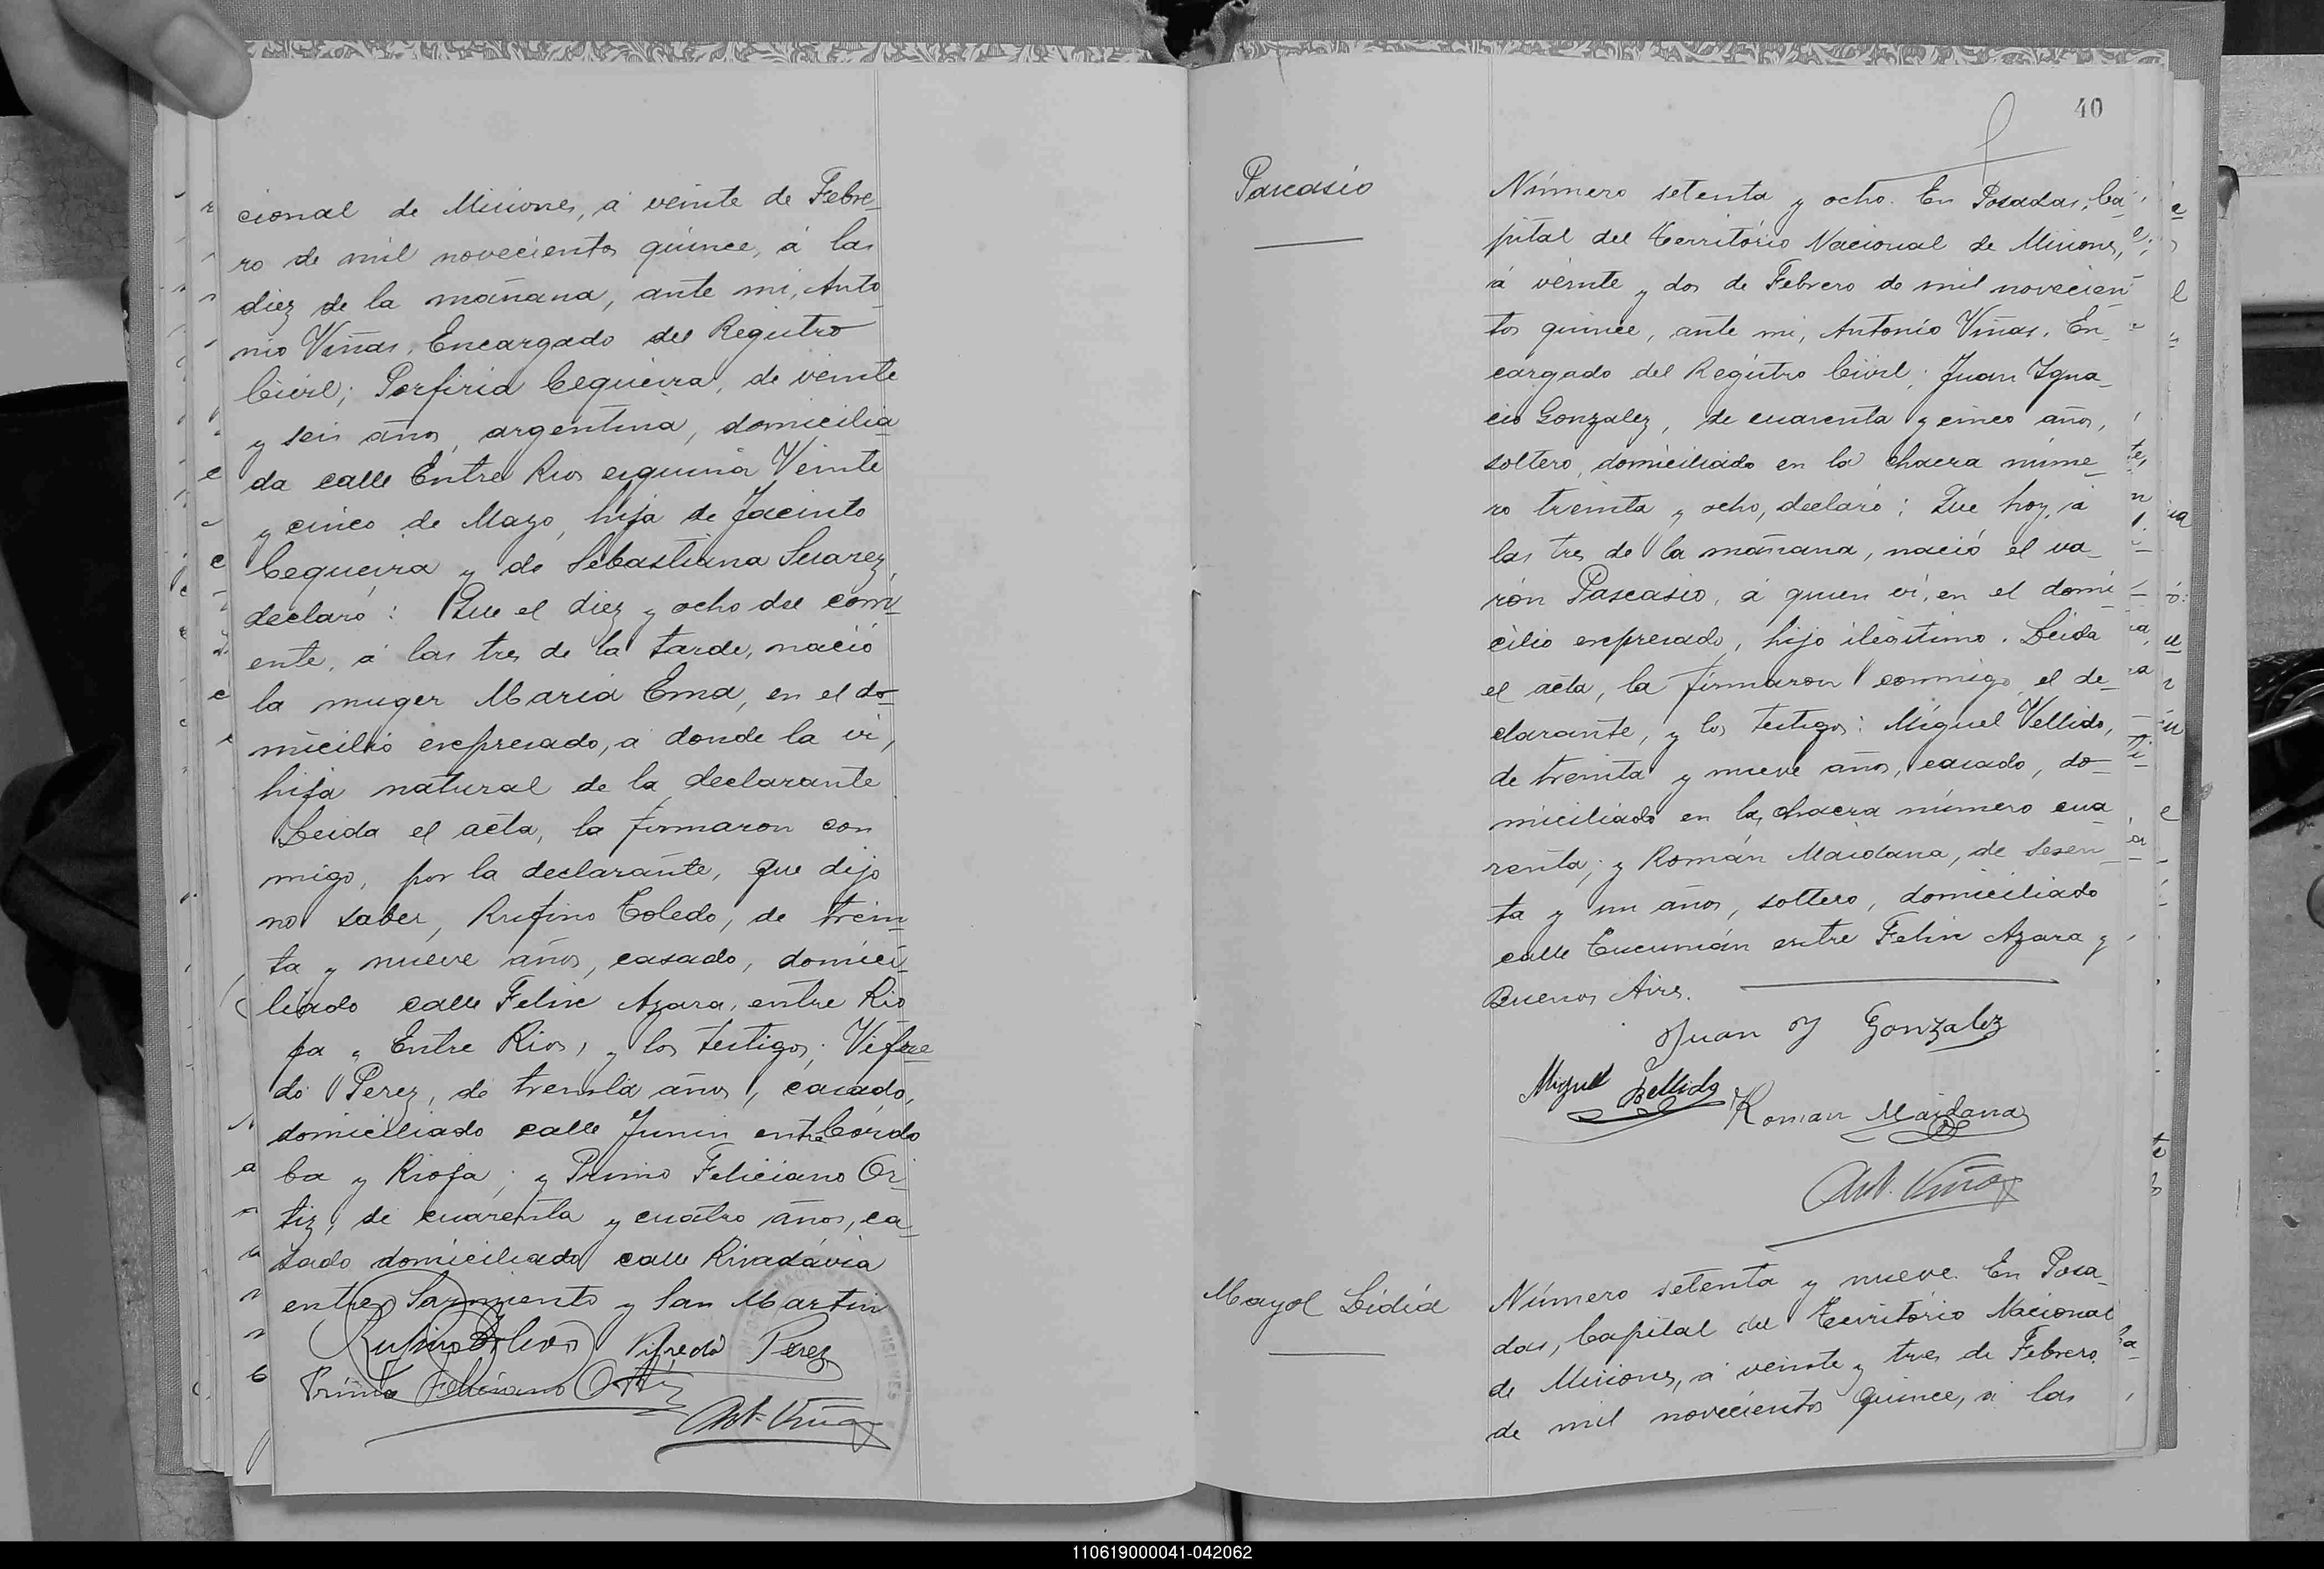 cional de Misiones, á veinte de Febre_
ro de mil novecientos quince, á las
diez de la mañana, ante mi, Anto_
nio Viñas, Encargado del Registro
Civil; Porfiria Cequeira, de veinte
y seis años, argentina, domicilia_
da calle Entre Rios esquina Veinte
y cinco de Mayo, hija de Jacinto
Cequeira y de Sebastiana Suarez,
declaró: Que el diez y ocho del corri_
ente, á las tres de la tarde, nació
la muger Maria Ema, en el do_
micilio expresado, á donde la vi,
hija natural de la declarante
Leida el acta, la firmaron con
migo, por la declarante, que dijo
no saber, Rufino Toledo, de trein_
ta y nueve años, casado, domici_
liado calle Felix Azara, entre Rio
ja y Entre Rios, y los testigos: Vifre
do Perez, de treinta años, casado,
domiciliado calle Junin entre Córdo
ba y Rioja; y Primo Feliciano Or_
tiz, de cuarenta y cuatro años, ca_
sado domiciliado calle Rivadávia
entre Sarmiento y San Martin
Rufino Toledo Vifredo Perez
Primo Feliciano Ortiz
Ant. Viñas
40
Pascasio
Número setenta y ocho. En Posadas, Ca_
pital del Território Nacional de Misiones,
á veinte y dos de Febrero de mil novecien_
tos quince, ante mi, Antonio Viñas, En_
cargado del Registro Civil; Juan Igna_
cio Gonzalez, de cuarenta y cinco años,
soltero, domiciliado en la chacra núme_
ro treinta y ocho, declaró: Que hoy, á
las tres de la mañana, nació el va_
rón Pascasio, á quien vi, en el domi_
cilio expresado, hijo ilegitimo. Leida
el acta, la firmaron conmigo, el de_
clarante, y los testigos: Miguel Vellido,
de treinta y nueve años, casado, do_
miciliado en la chacra número cua
renta; y Román Maidana, de sesen_
ta y un años, soltero, domiciliado
calle Tucumán entre Felix Azara y
Buenos Aires.
Juan Y Gonzalez
Miguel Bellido
Roman Maidana
Ant. Viñas
Mayol Lidia
Número setenta y nueve. En Posa_
das, Capital del Território Nacional
de Misiones, á veinte y tres de Febrero
de mil novecientos quince, á las
110619000041-042062